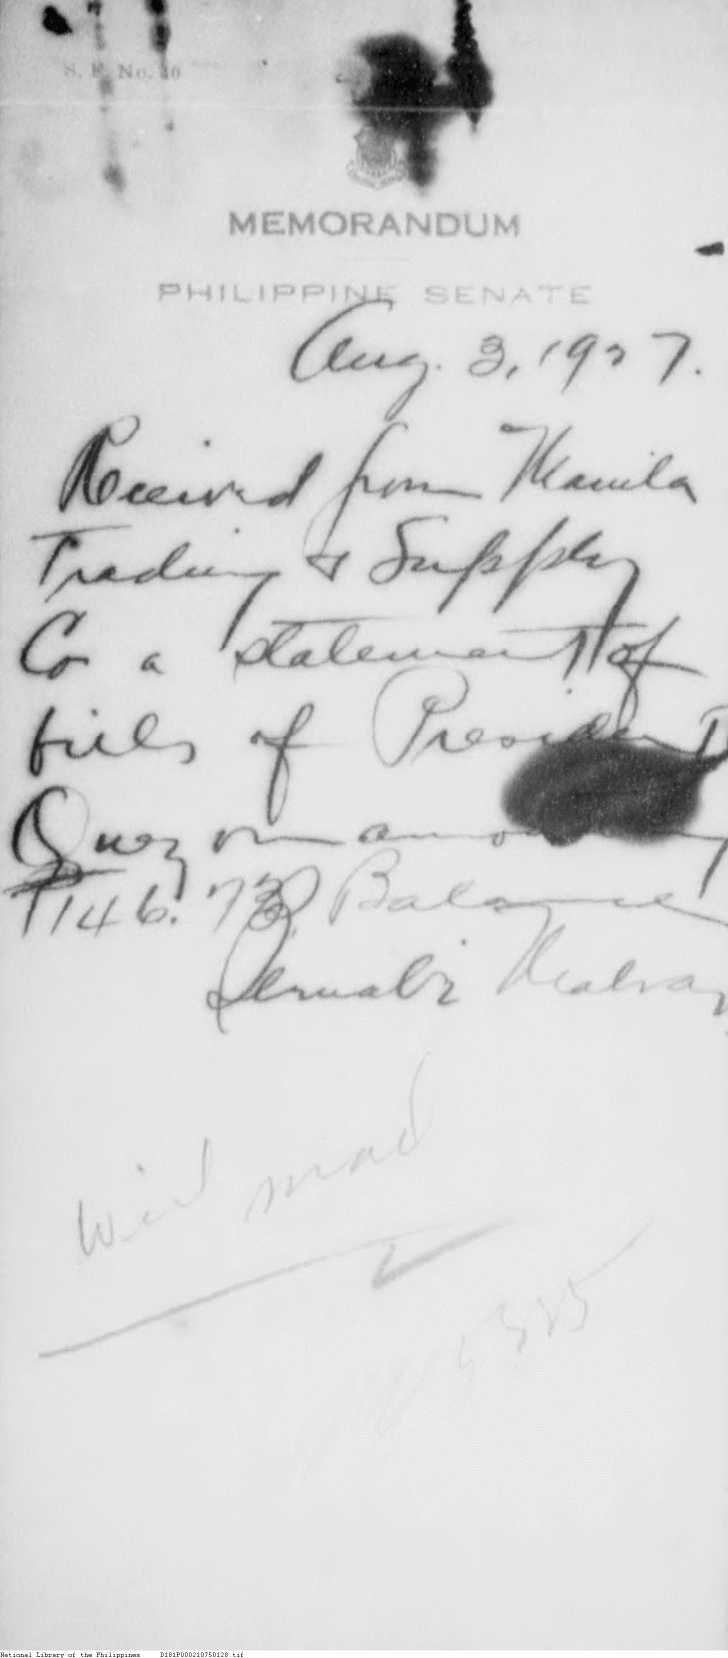 S. F. No. 10
MEMORANDUM
PHILIPPINE SENATE
Aug. 3, 1927.
Received from Manila
Trading & Supply
Co a statement of
bills of President
Quezon amounting
₱146.73 Balance
wil
5325
National Library of the Philippines D181P000210750128.tif